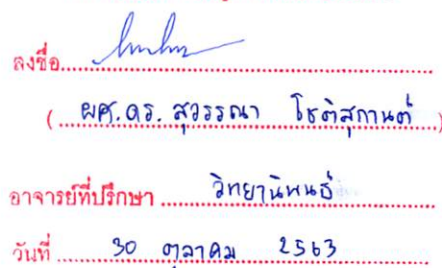 ลงชื่อ
( ผศ.ดร. สุวรรณา โชติสุกานต์ )
อาจารย์ที่ปรึกษา วิทยานิพนธ์
วันที่ 30 ตุลาคม 2563